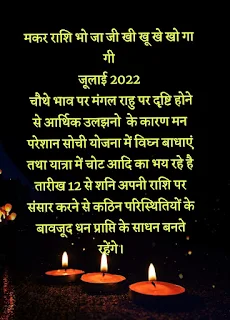 मकर राशि भो जा जी खी खू खे खो गा
गी
जूलाई 2022
चौथे भाव पर मंगल राहु पर दृष्टि होने
से आर्थिक उलझनो के कारण मन
परेशान सोची योजना में विघ्न बाधाएं
तथा यात्रा में चोट आदि का भय रहे है
तारीख 12 से शनि अपनी राशि पर
संसार करने से कठिन परिस्थितियों के
बावजूद धन प्राप्ति के साधन बनते
रहेंगे।